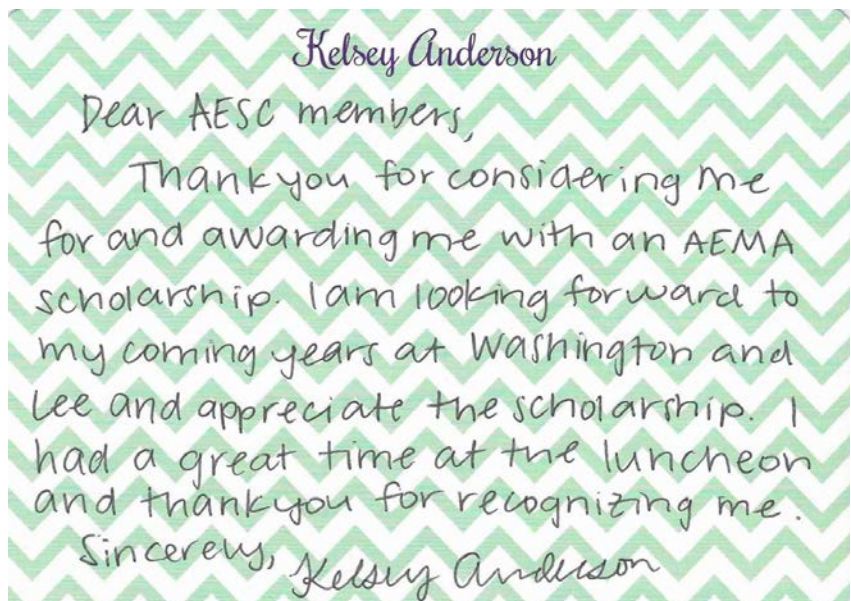 Kelsey Anderson
Dear AESC members,
Thank you for considering me
for and awarding me with an AEMA
scholarship. I am looking forward to
my coming years at Washington and
Lee and appreciate the scholarship. I
had a great time at the luncheon
and thankyou for recognizing me.
Sincerely, Kelsey Anderson